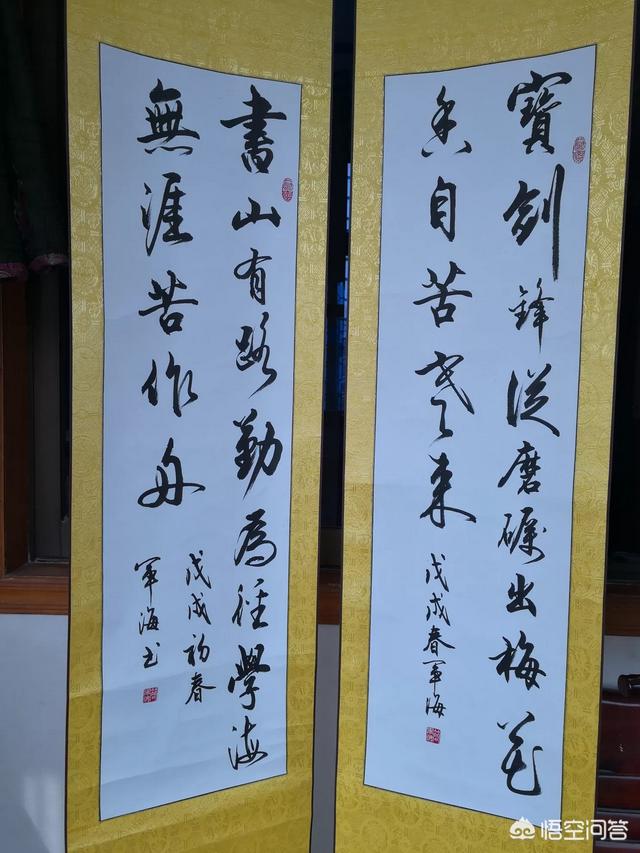 寶劍鋒從磨礪出梅花
香自苦寒來
戊戌春軍海
書山有路勤為徑學海
無涯苦作舟
戊戌初春
軍海书
悟空问答